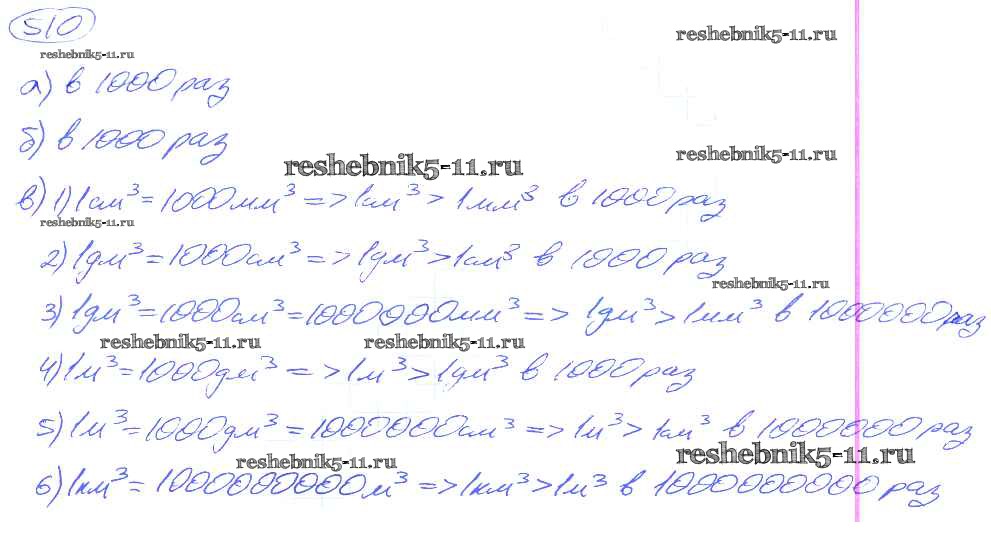 510
reshebnik5-11.ru
reshebnik5-11.ru
а) в 1000 раз
б) в 1000 раз
reshebnik5-11.ru
reshebnik5-11.ru
в) 1) 1см³ = 1000мм³ => 1см³ > 1мм³ в 1000 раз
reshebnik5-11.ru
2) 1дм³ = 1000см³ => 1дм³ > 1см³ в 1000 раз
reshebnik5-11.ru
3) 1дм³ = 1000см³ = 1000000мм³ => 1дм³ > 1мм³ в 1000000 раз
reshebnik5-11.ru
reshebnik5-11.ru
4) 1м³ = 1000дм³ => 1м³ > 1дм³ в 1000 раз
5) 1м³ = 1000дм³ = 1000000см³ => 1м³ > 1см³ в 1000000 раз
reshebnik5-11.ru
reshebnik5-11.ru
6) 1км³ = 1000000000м³ => 1км³ > 1м³ в 1000000000 раз